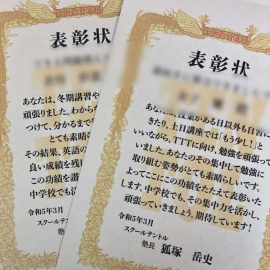 表彰状
あなたは、冬期講習や
頑張りました。わから
つけて、分かるまで
とても素晴らし
その結果、英語の
良い成績を残
この功績を讃
中学校でも活
令和5年3月
スクールテントル
塾長
表彰状
あなたは、授業がある日以外も自習
きたり、土日講座では「もう少し！」と
いいながら、TTTに向け、勉強を頑張っ
いました。あなたのその集中して勉強に
取り組む姿勢がとても素晴らしいです。
よってここにこの功績をたたえて表彰いた
します。中学校でも、その集中力を活かし、
頑張っていきましょう。期待しています！
令和5年3月
スクールテントル
塾長 狐塚 岳史